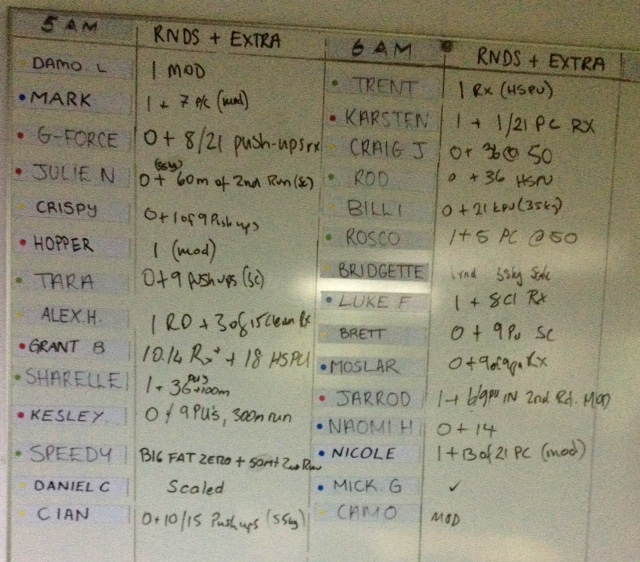 5 AM RNDS + EXTRA
DAMO. L 1 MOD
MARK 1 + 7 P/C (mod)
G-FORCE 0 + 8/21 push-ups rx
JULIE N 0 + 60m of 2nd Run (sc)
CRISPY 0 + 1 of 9 Push ups
HOPPER 1 (mod)
TARA 0 + 9 pushups (sc)
ALEX.H. 1 RD + 3 of 15 clean Rx
GRANT B 10.14 Rx+ + 18 HSPU
SHARELLE 1 + 36 PU's +100m
KESLEY. 0 + 9 PU's, 300m run
SPEEDY BIG FAT ZERO + 50mt 2nd Run
DANIEL C Scaled
CIAN 0+10/15 Push ups (55kg)
6 AM RNDS + EXTRA
TRENT 1 Rx (HSPU)
KARSTEN 1 + 1/21 PC RX
CRAIG J 0 + 36 @ 50
ROD 0 + 36 HSPU
BILLI 0 + 21 (35kg)
ROSCO 1+5 PC @ 50
BRIDGETTE 1 rnd 35kg Scale
LUKE F 1 + 8 Cl Rx
BRETT 0 + 9 Pu SC
MOSLAR 0 + 9 of 9 pu Rx
JARROD 1 + 6/9 PU IN 2nd Rd. MOD
NAOMI H 0 + 14
NICOLE 1 + 13 of 21 PC (mod)
MICK. G ✓
CAMO MOD